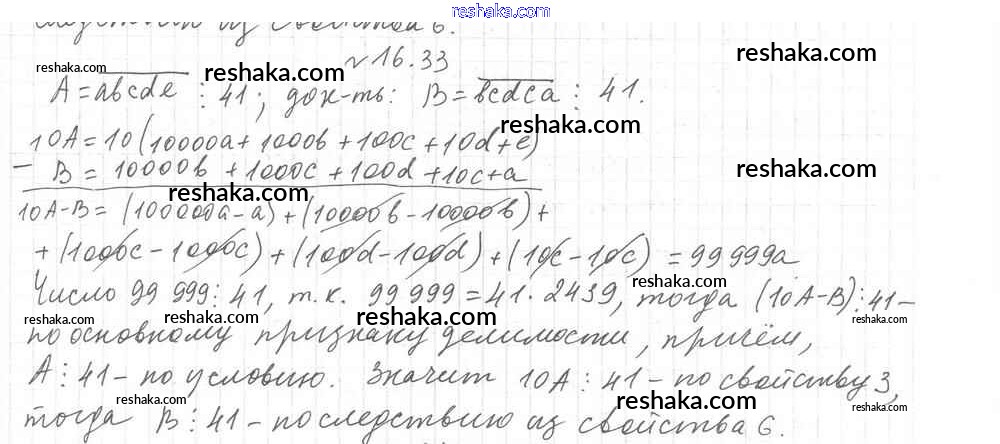 reshaka.com
следствию из свойства 6.
reshaka.com
№16.33
reshaka.com reshaka.com
A = abcde ⋮ 41; док-ть: B = bcdea ⋮ 41.
reshaka.com
10A = 10(10000a + 1000b + 100c + 10d + e)
− B = 10000b + 1000c + 100d + 10e + a
reshaka.com reshaka.com
10A-B = (100000a - a) + (10000b - 10000b) +
+ (1000c - 1000c) + (100d - 100d) + (10e - 10e) = 99 999a
reshaka.com
Число 99 999 ⋮ 41, т.к. 99 999 = 41 · 2439, тогда (10A-B) ⋮ 41 -
reshaka.com reshaka.com reshaka.com reshaka.com
по основному признаку делимости, причём,
A ⋮ 41 - по условию. Значит 10A ⋮ 41 - по свойству 3,
reshaka.com reshaka.com reshaka.com reshaka.com
тогда B ⋮ 41 - по следствию из свойства 6.